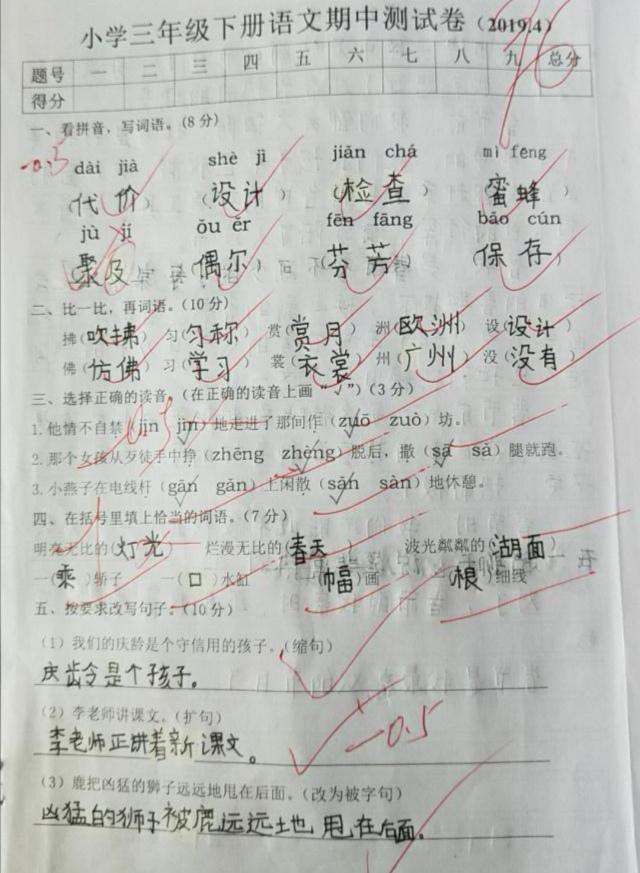 小学三年级下册语文期中测试卷（2019.4）
题号 一 二 三 四 五 六 七 八 九 总分
得分
一、看拼音，写词语。（8分）
-0.5
dài jià shè jì jiǎn chá mì fēng
（代价）（设计）（检查）（蜜蜂）
jù jí ǒu ěr fēn fāng bǎo cún
（聚及）（偶尔）（芬芳）（保存）
二、比一比，再词语。（10分）
拂（吹拂） 匀（匀称） 赏（赏月） 洲（欧洲） 设（设计）
佛（仿佛） 习（学习） 裳（衣裳） 州（广州） 没（没有）
三、选择正确的读音。（在正确的读音上画“√”）（3分）
1.他情不自禁（jīn jìn）地走进了那间作（zuō zuò）坊。
2.那个女孩从歹徒手中挣（zhēng zhèng）脱后，撒（sā sà）腿就跑。
3.小燕子在电线杆（gān gǎn）上闲散（sǎn sàn）地休憩。
四、在括号里填上恰当的词语。（7分）
明亮无比的（灯光） 烂漫无比的（春天） 波光粼粼的（湖面）
一（乘）轿子 一（口）水缸 一（幅）画 一（根）细线
五、按要求改写句子。（10分）
（1）我们的庆龄是个守信用的孩子。（缩句）
庆龄是个孩子。
（2）李老师讲课文。（扩句）
-0.5
李老师正讲着新课文。
（3）鹿把凶猛的狮子远远地甩在后面。（改为被字句）
凶猛的狮子被鹿远远地甩在后面。